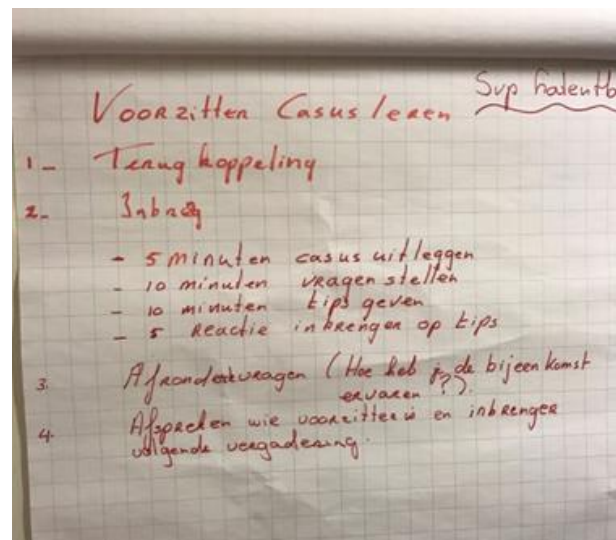 Svp
Voorzitten Casus leren
1- Terugkoppeling
2- Inbreng
- 5 minuten casus uitleggen
- 10 minuten vragen stellen
- 10 minuten tips geven
- 5 Reactie inbrenger op tips
3. (Hoe heb je de bijeenkomst
ervaren?).
4. Afspreken wie voorzitter is en inbrenger
volgende vergadering.